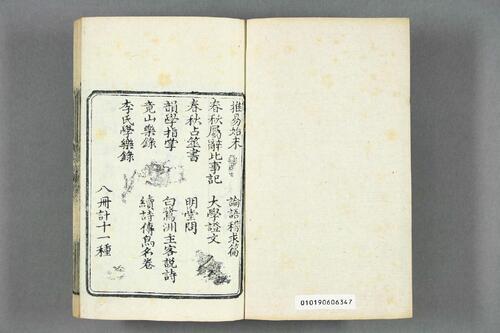 推易始末　論語稽求篇
春秋屬辭比事記　大學證文
春秋占筮書　明堂問
韻學指掌　白鷺洲主客說詩
竟山樂錄　續詩傳鳥名卷
李氏學樂錄
八冊計十一種
010190606347